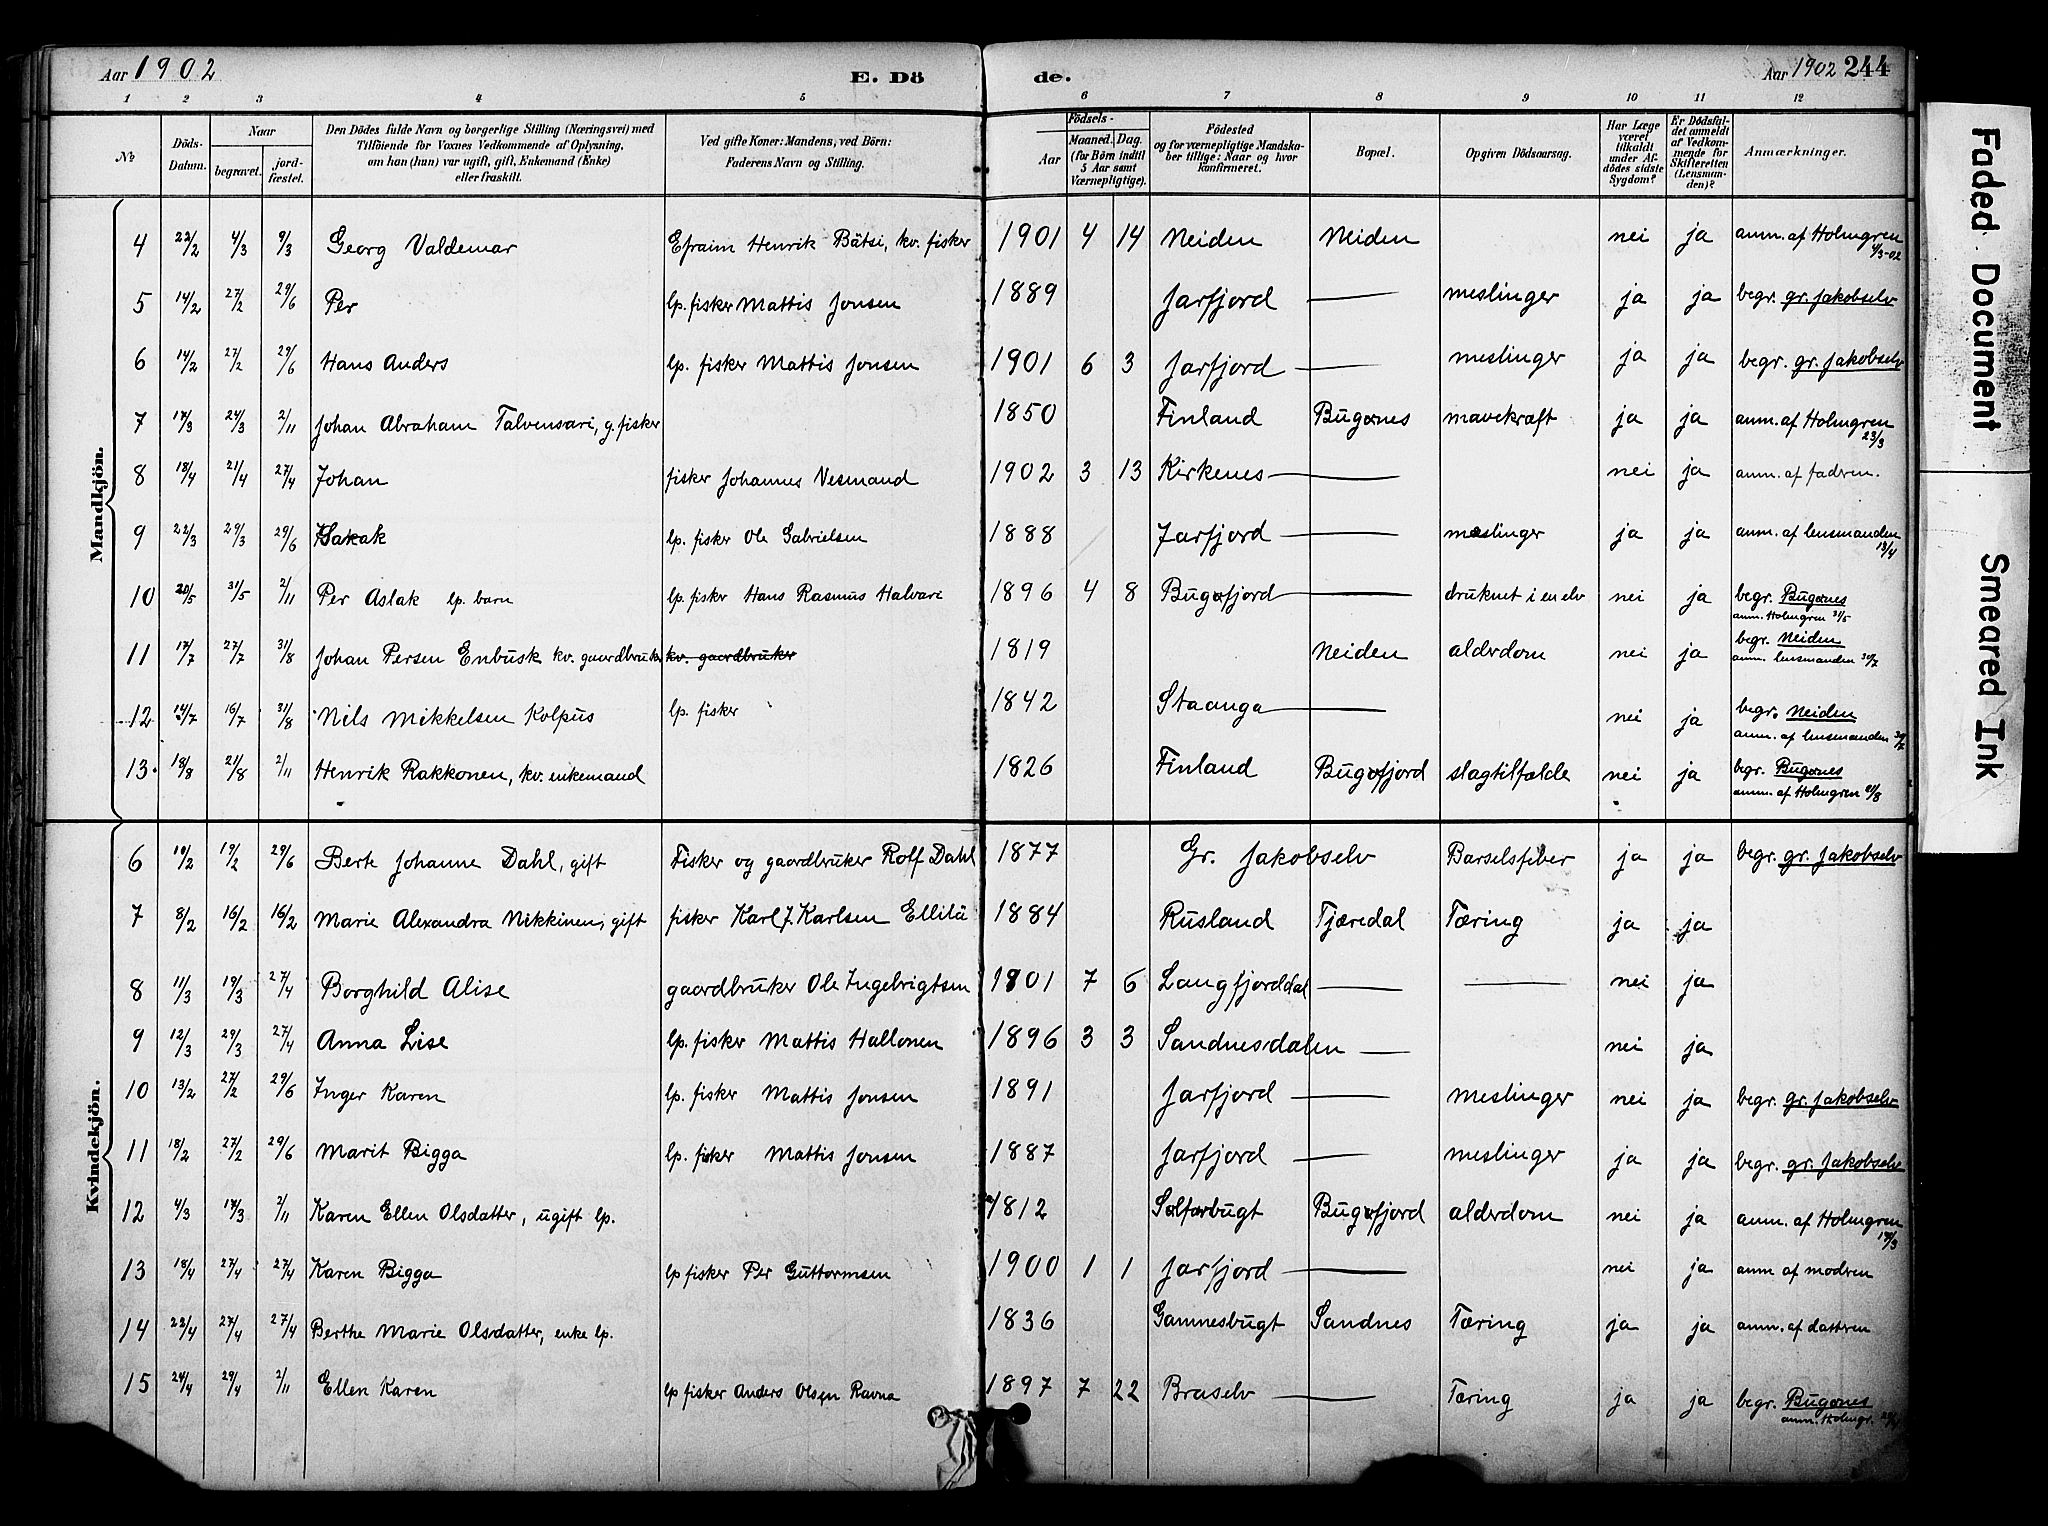 Aar 1902 E. Dö de. Aar 1902 244
1 2 3 4 5 6 7 8 9 10 11 12
No
Döds-Datum.
Naar
begravet.
jord-fæstet.
Den Dödes fulde Navn og borgerlige Stilling (Næringsvei) med
Tilföiende for Voxnes Vedkommende af Oplysning,
om han (hun) var ugift, gift, Enkemand (Enke)
eller fraskilt.
Ved gifte Koner: Mandens, ved Börn:
Faderens Navn og Stilling.
Födsels-
Aar
Maaned. Dag.
(for Börn indtil
5 Aar samt
Værnepligtige).
Födested
og for værnepligtige Mandskaber tillige: Naar og hvor
konfirmeret.
Bopæl.
Opgiven Dödsaarsag.
Har Læge
været
tilkaldt
under Afdödes sidste
Sygdom?
Er Dödsfaldet anmeldt
af Vedkommende for
Skifteretten
(Lensmanden)?
Anmærkninger.
Mandkjön.
4 22/2 4/3 9/3 Georg Valdemar Efraim Henrik Bätsi, kv. fisker 1901 4 14 Neiden Neiden nei ja anm. af Holmgren 4/3-02
5 14/2 27/2 29/6 Per lp. fisker Mattis Jonsen 1889 Jarfjord — meslinger ja ja begr. gr. Jakobselv
6 14/2 27/2 29/6 Hans Anders lp. fisker Mattis Jonsen 1901 6 3 Jarfjord — meslinger ja ja begr. gr. Jakobselv
7 17/3 24/3 2/11 Johan Abraham Talvensari, g. fisker 1850 Finland Bugønes mavekræft ja ja anm. af Holmgren 23/3
8 18/4 21/4 27/4 Johan fisker Johannes Vesmand 1902 3 13 Kirkenes — nei ja anm. af fadren.
9 22/3 29/3 29/6 lp. fisker Ole Gabrielsen 1888 Jarfjord — meslinger ja ja anm. af lensmanden 13/4
10 20/5 31/5 2/11 Per Aslak lp. barn lp. fisker Hans Rasmus Halvari 1896 4 8 Bugøfjord — druknet i en elv nei ja begr. Bugønes
anm. Holmgren 31/5
11 17/7 27/7 31/8 Johan Persen Enbusk kv. gaardbruker kv. gaardbruker 1819 Neiden alderdom nei ja begr. Neiden
anm. lensmanden 30/7
12 14/7 16/7 31/8 Nils Mikkelsen Kolpus lp. fisker 1842 Staanga — nei ja begr. Neiden
anm. af lensmanden 30/7
13. 18/8 21/8 2/11 Henrik Rakkonen, kv. enkemand 1826 Finland Bugøfjord slagtilfælde nei ja begr. Bugønes
anm. af Holmgren 21/8
Kvindekjön.
6 10/2 19/2 29/6 Berte Johanne Dahl, gift Fisker og gaardbruker Rolf Dahl 1877 Gr. Jakobselv Barselsfeber ja ja begr. gr. Jakobselv
7 8/2 16/2 16/2 Marie Alexandra Nikkinen, gift fisker Karl J. Karlsen Ellilä 1884 Rusland Tjæredal Tæring ja ja
8 11/3 19/3 27/4 Borghild Alise gaardbruker Ole Ingebrigtsen 1901 7 6 Langfjorddal — — nei ja
9 12/3 29/3 27/4 Anna Lise lp. fisker Mattis Hallonen 1896 3 3 Sandnesdalen — nei ja
10 13/2 27/2 29/6 Inger Karen lp. fisker Mattis Jonsen 1891 Jarfjord — meslinger nei ja begr. gr. Jakobselv
11 18/2 27/2 29/6 Marit Bigga lp. fisker Mattis Jonsen 1887 Jarfjord — meslinger ja ja begr. gr. Jakobselv
12 4/3 17/3 2/11 Karen Ellen Olsdatter, ugift lp. 1812 Bugøfjord alderdom nei ja anm. af Holmgren
13 18/4 27/4 27/4 Karen Bigga lp fisker Per Guttormsen 1900 1 1 Jarfjord — nei ja anm af modren
14 22/4 27/4 27/4 Berthe Marie Olsdatter, enke lp. 1836 Gamnesbugt Sandnes Tæring ja ja anm. af datteren
15 24/4 29/4 2/11 Ellen Karen lp fisker Anders Olsen Ravna 1897 7 22 Braselv — Tæring ja ja begr. Bugønes
anm. Holmgr.
Faded Document
Smeared Ink